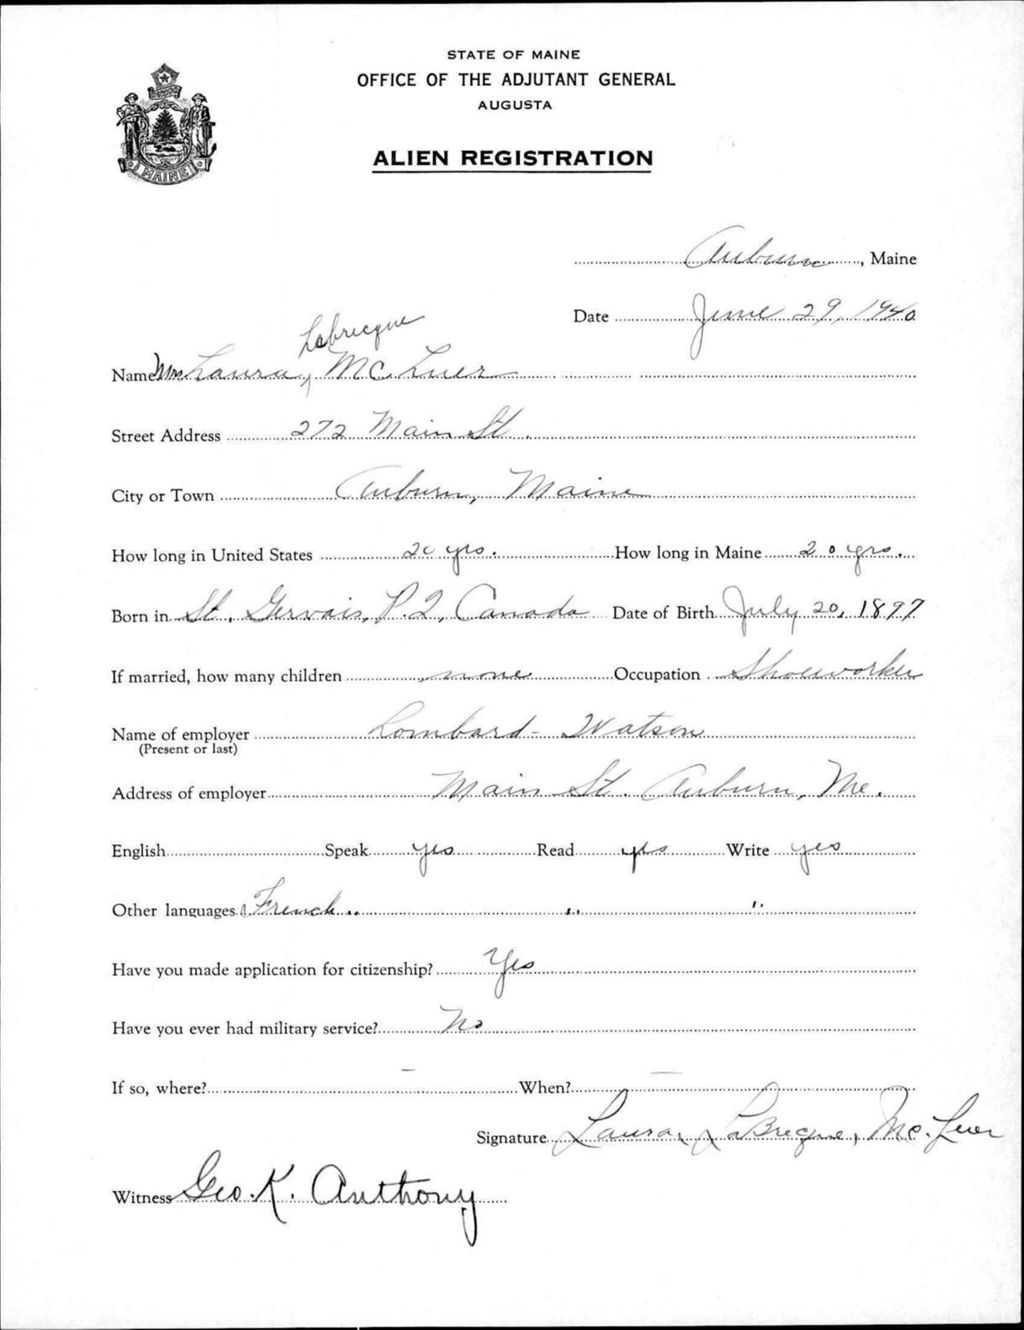 STATE OF MAINE
OFFICE OF THE ADJUTANT GENERAL
AUGUSTA
MAINE
ALIEN REGISTRATION
Auburn, Maine
Date June 29, 1940
Labrecque
Name Mrs Laura, McLuer
Street Address 272 Main St.
City or Town Auburn, Maine
How long in United States 20 yrs. How long in Maine 20 yrs.
Born in St. Gervais, P.Q, Canada Date of Birth July 20, 1897
If married, how many children none Occupation Shoeworker
Name of employer Lombard - Watson
(Present or last)
Address of employer Main St. Auburn, Me.
English Speak yes Read yes Write yes
Other languages French " " "
Have you made application for citizenship? Yes
Have you ever had military service? No
If so, where? — When? —
Signature Laura, LaBrecque, Mc.Luer
Witness Geo. K. Anthony